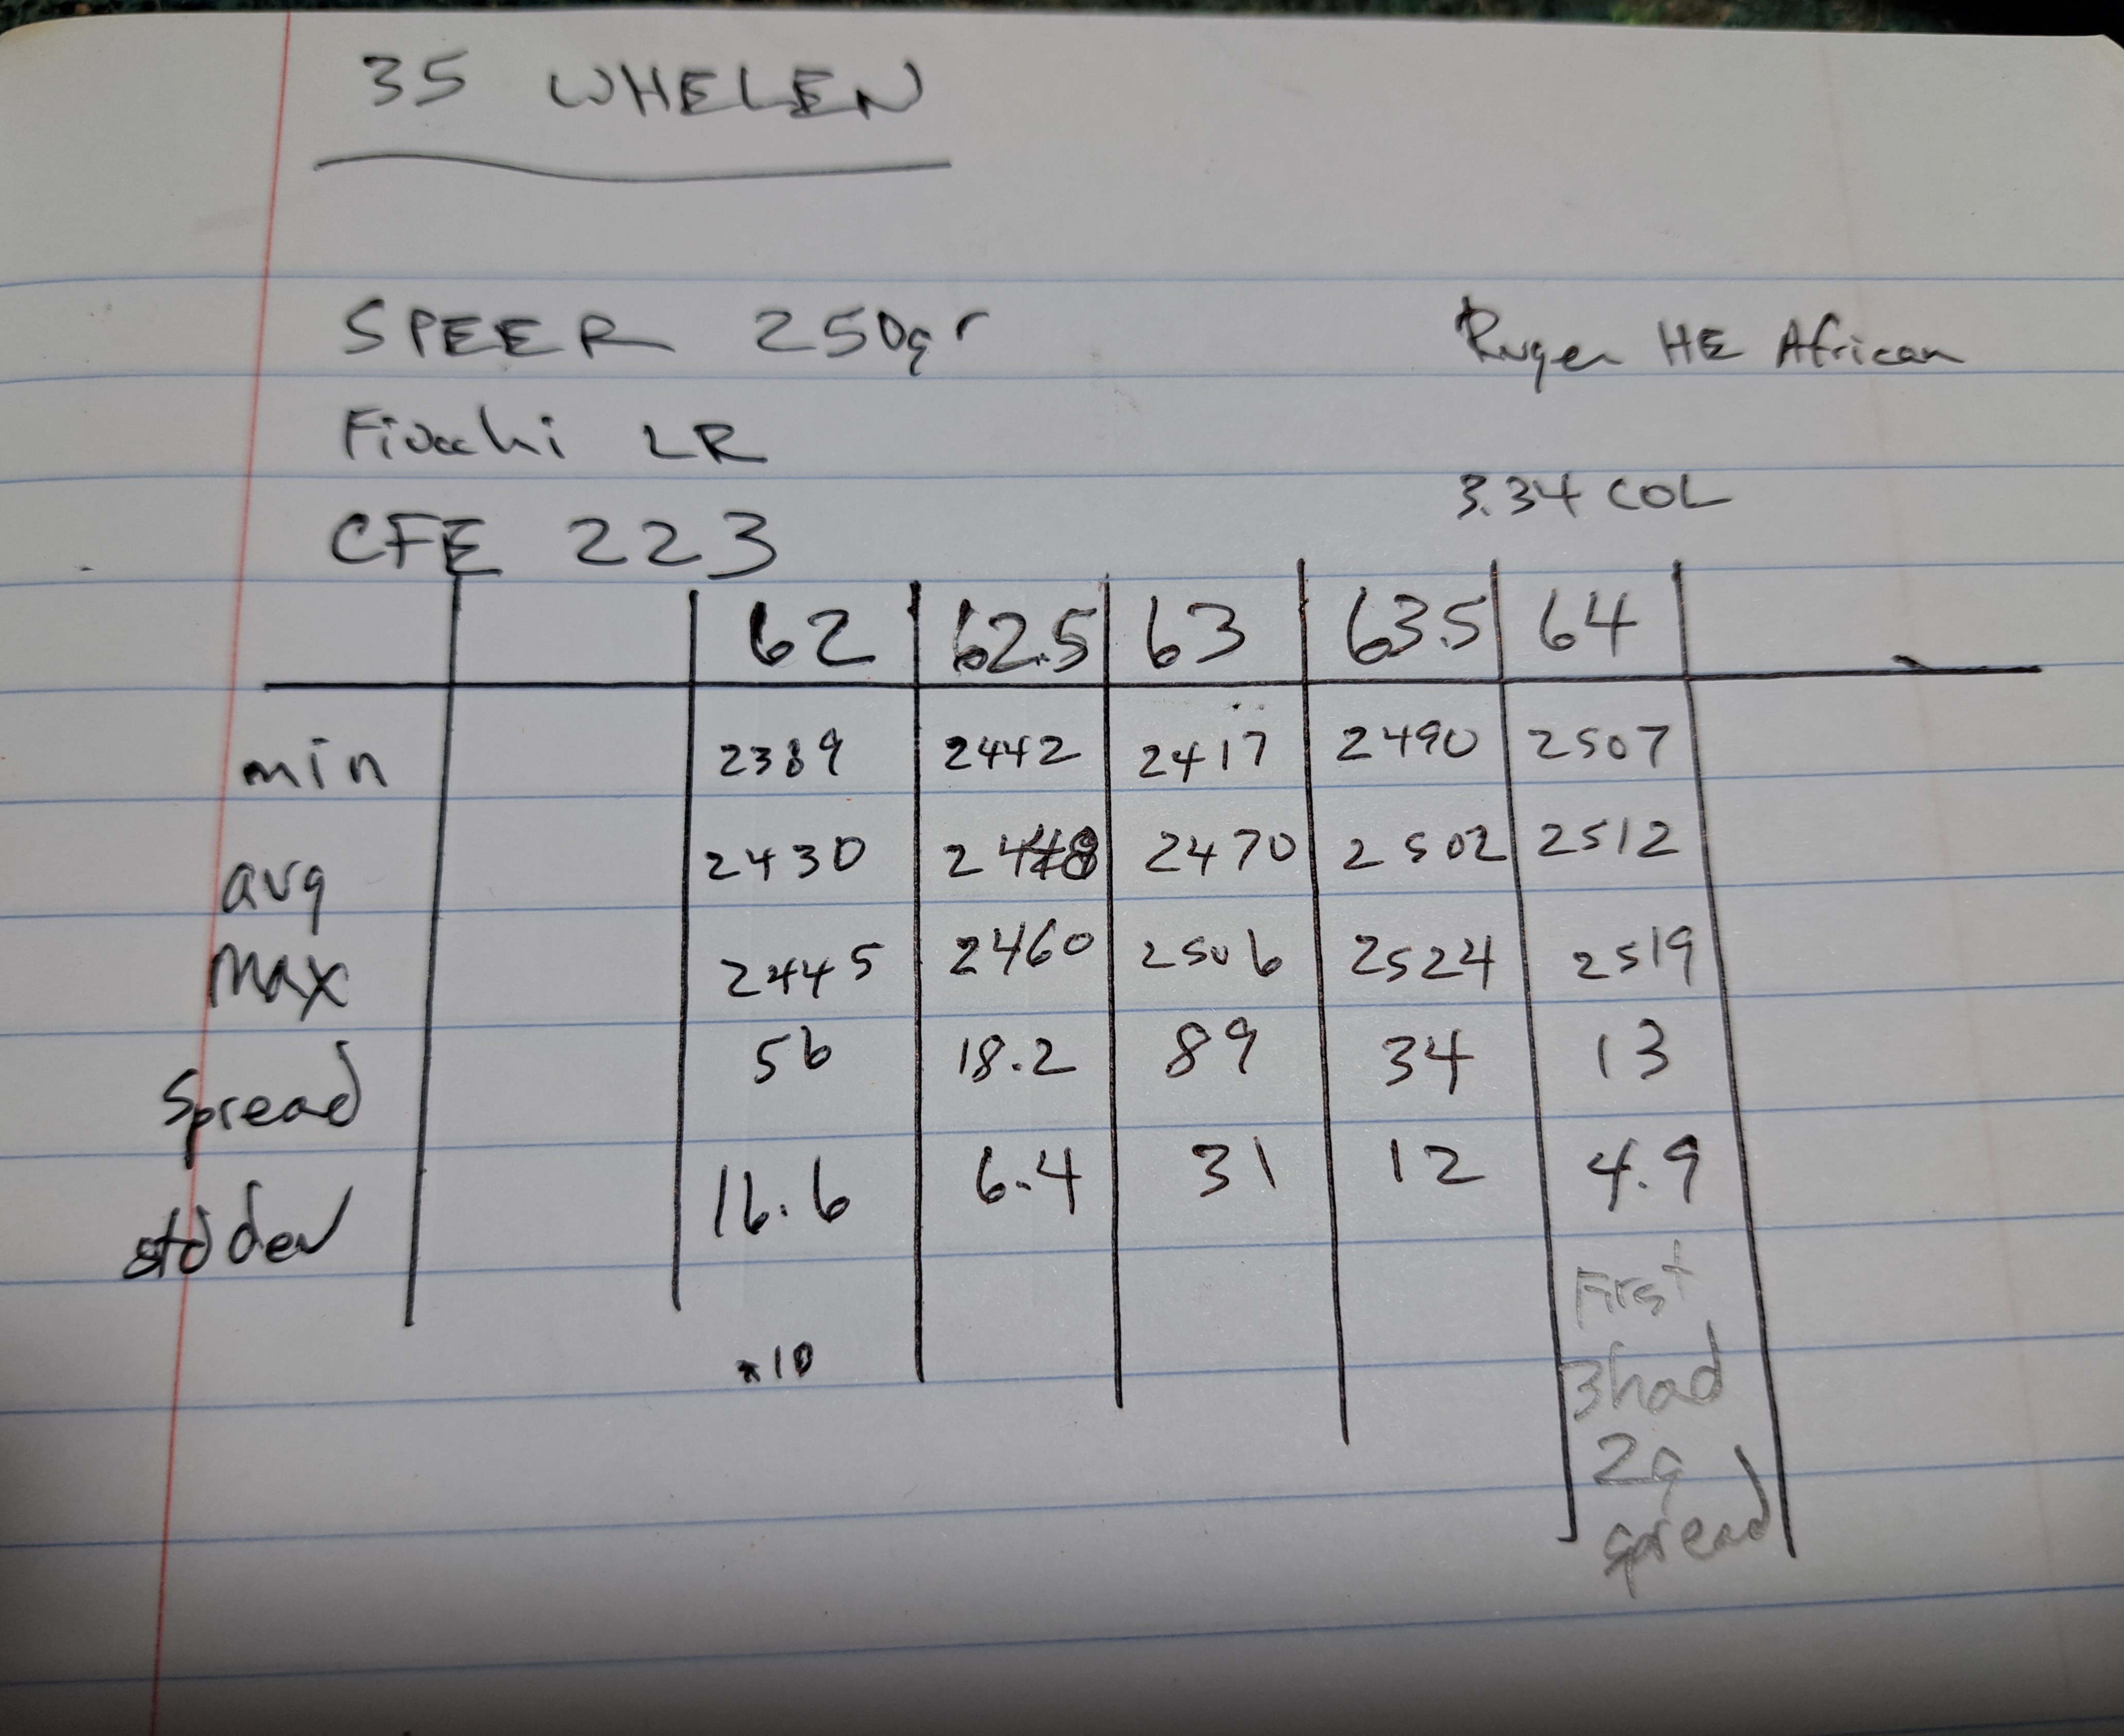 35 WHELEN
SPEER 250gr
Ruger HE African
Fiocchi LR
3.34 COL
CFE 223
62 62.5 63 63.5 64
min 2389 2442 2417 2490 2507
avg 2430 2448 2470 2502 2512
max 2445 2460 2506 2524 2519
Spread 56 18.2 89 34 13
std dev 16.6 6.4 31 12 4.9
x10
First
3 had
29
spread